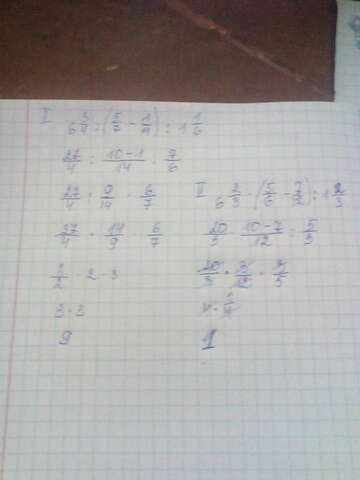 I 6 3/4 : (5/7 - 1/14) : 1 1/6
27/4 : 10-1/14 : 7/6
27/4 : 9/14 · 6/7
27/4 · 14/9 · 6/7
3/2 · 2 · 3
3 · 3
9
II 6 2/3 · (5/6 - 7/12) : 1 2/3
20/3 · 10-7/12 : 5/3
20/3 · 3/12 · 3/5
1